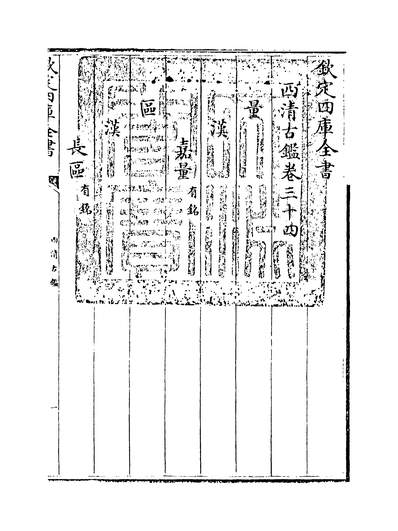 欽定四庫全書
西清古鑑卷三十四
量
漢
嘉量有銘
區
漢
長區有銘
欽定四庫全書
西清古鑑
一